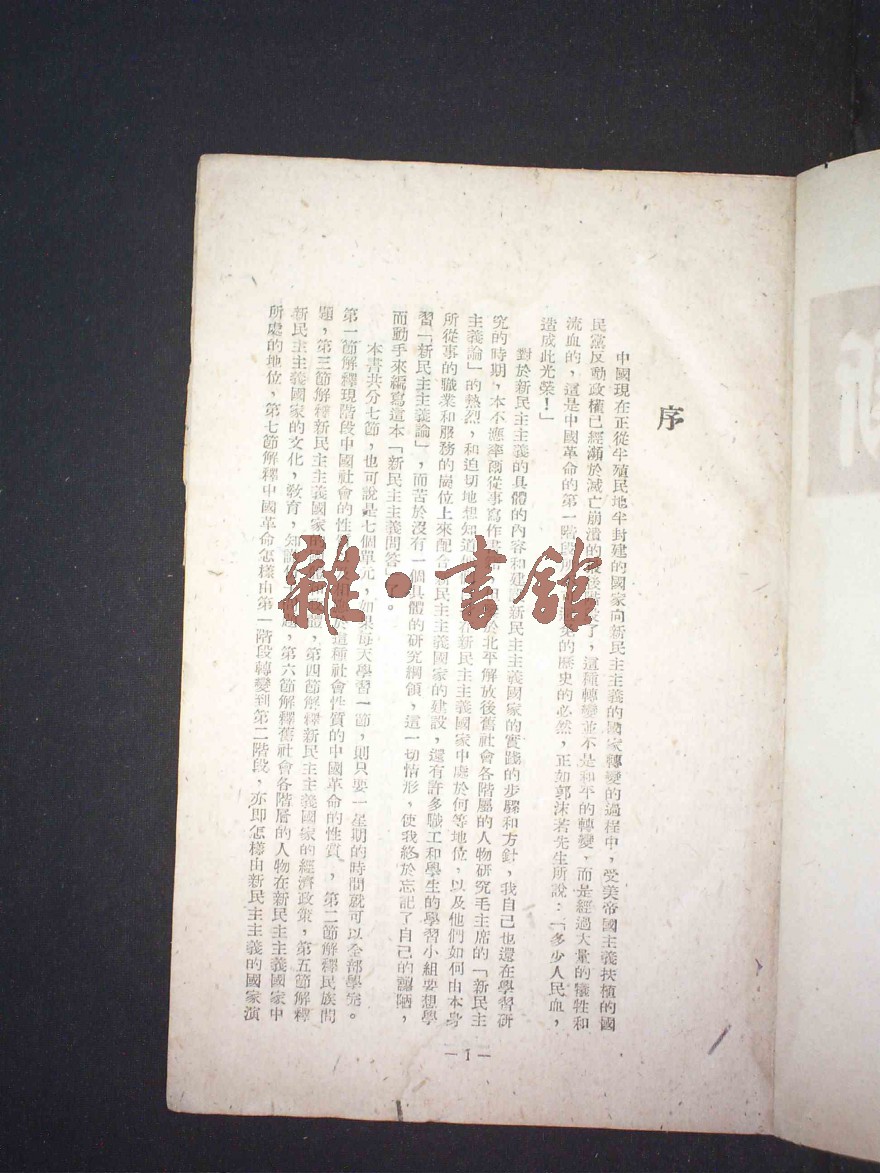 序
中國現在正從半殖民地半封建的國家向新民主主義的國家轉變的過程中，受美帝國主義扶植的國
民黨反動政權已經瀕於滅亡崩潰的最後階段了，這種轉變並不是和平的轉變，而是經過大量的犧牲和
流血的，這是中國革命的第一階段的歷史的必然，正如郭沫若先生所說：「多少人民血，
造成此光榮！」
對於新民主主義的具體的內容和建設新民主主義國家的實踐的步驟和方針，我自己也還在學習研
究的時期，本不應率爾從事寫作，於北平解放後舊社會各階層的人物研究毛主席的「新民主
主義論」的熱烈，和迫切地想知道在新民主主義國家中處於何等地位，以及他們如何由本身
所從事的職業和服務的崗位上來配合新民主主義國家的建設，還有許多職工和學生的學習小組要想學
習「新民主主義論」，而苦於沒有一個具體的研究綱領，這一切情形，使我終於忘記了自己的譾陋，
而動手來編寫這本「新民主主義問答」。
本書共分七節，也可說是七個單元，如果每天學習一節，則只要一星期的時間就可以全部學完。
第一節解釋現階段中國社會的性質這種社會性質的中國革命的性質。第二節解釋民族問
題，第三節解釋新民主主義國家的，第四節解釋新民主主義國家的經濟政策，第五節解釋
新民主主義國家的文化，教育，知識，第六節解釋舊社會各階層的人物在新民主主義國家中
所處的地位，第七節解釋中國革命怎樣由第一階段轉變到第二階段，亦即怎樣由新民主主義的國家演
— 1 —
雜·書館
新